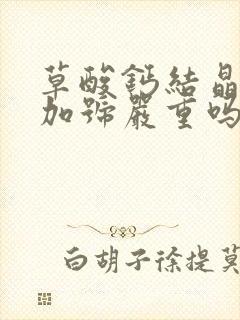 草酸鈣結晶
加號嚴重吗
白胡子徐提莫